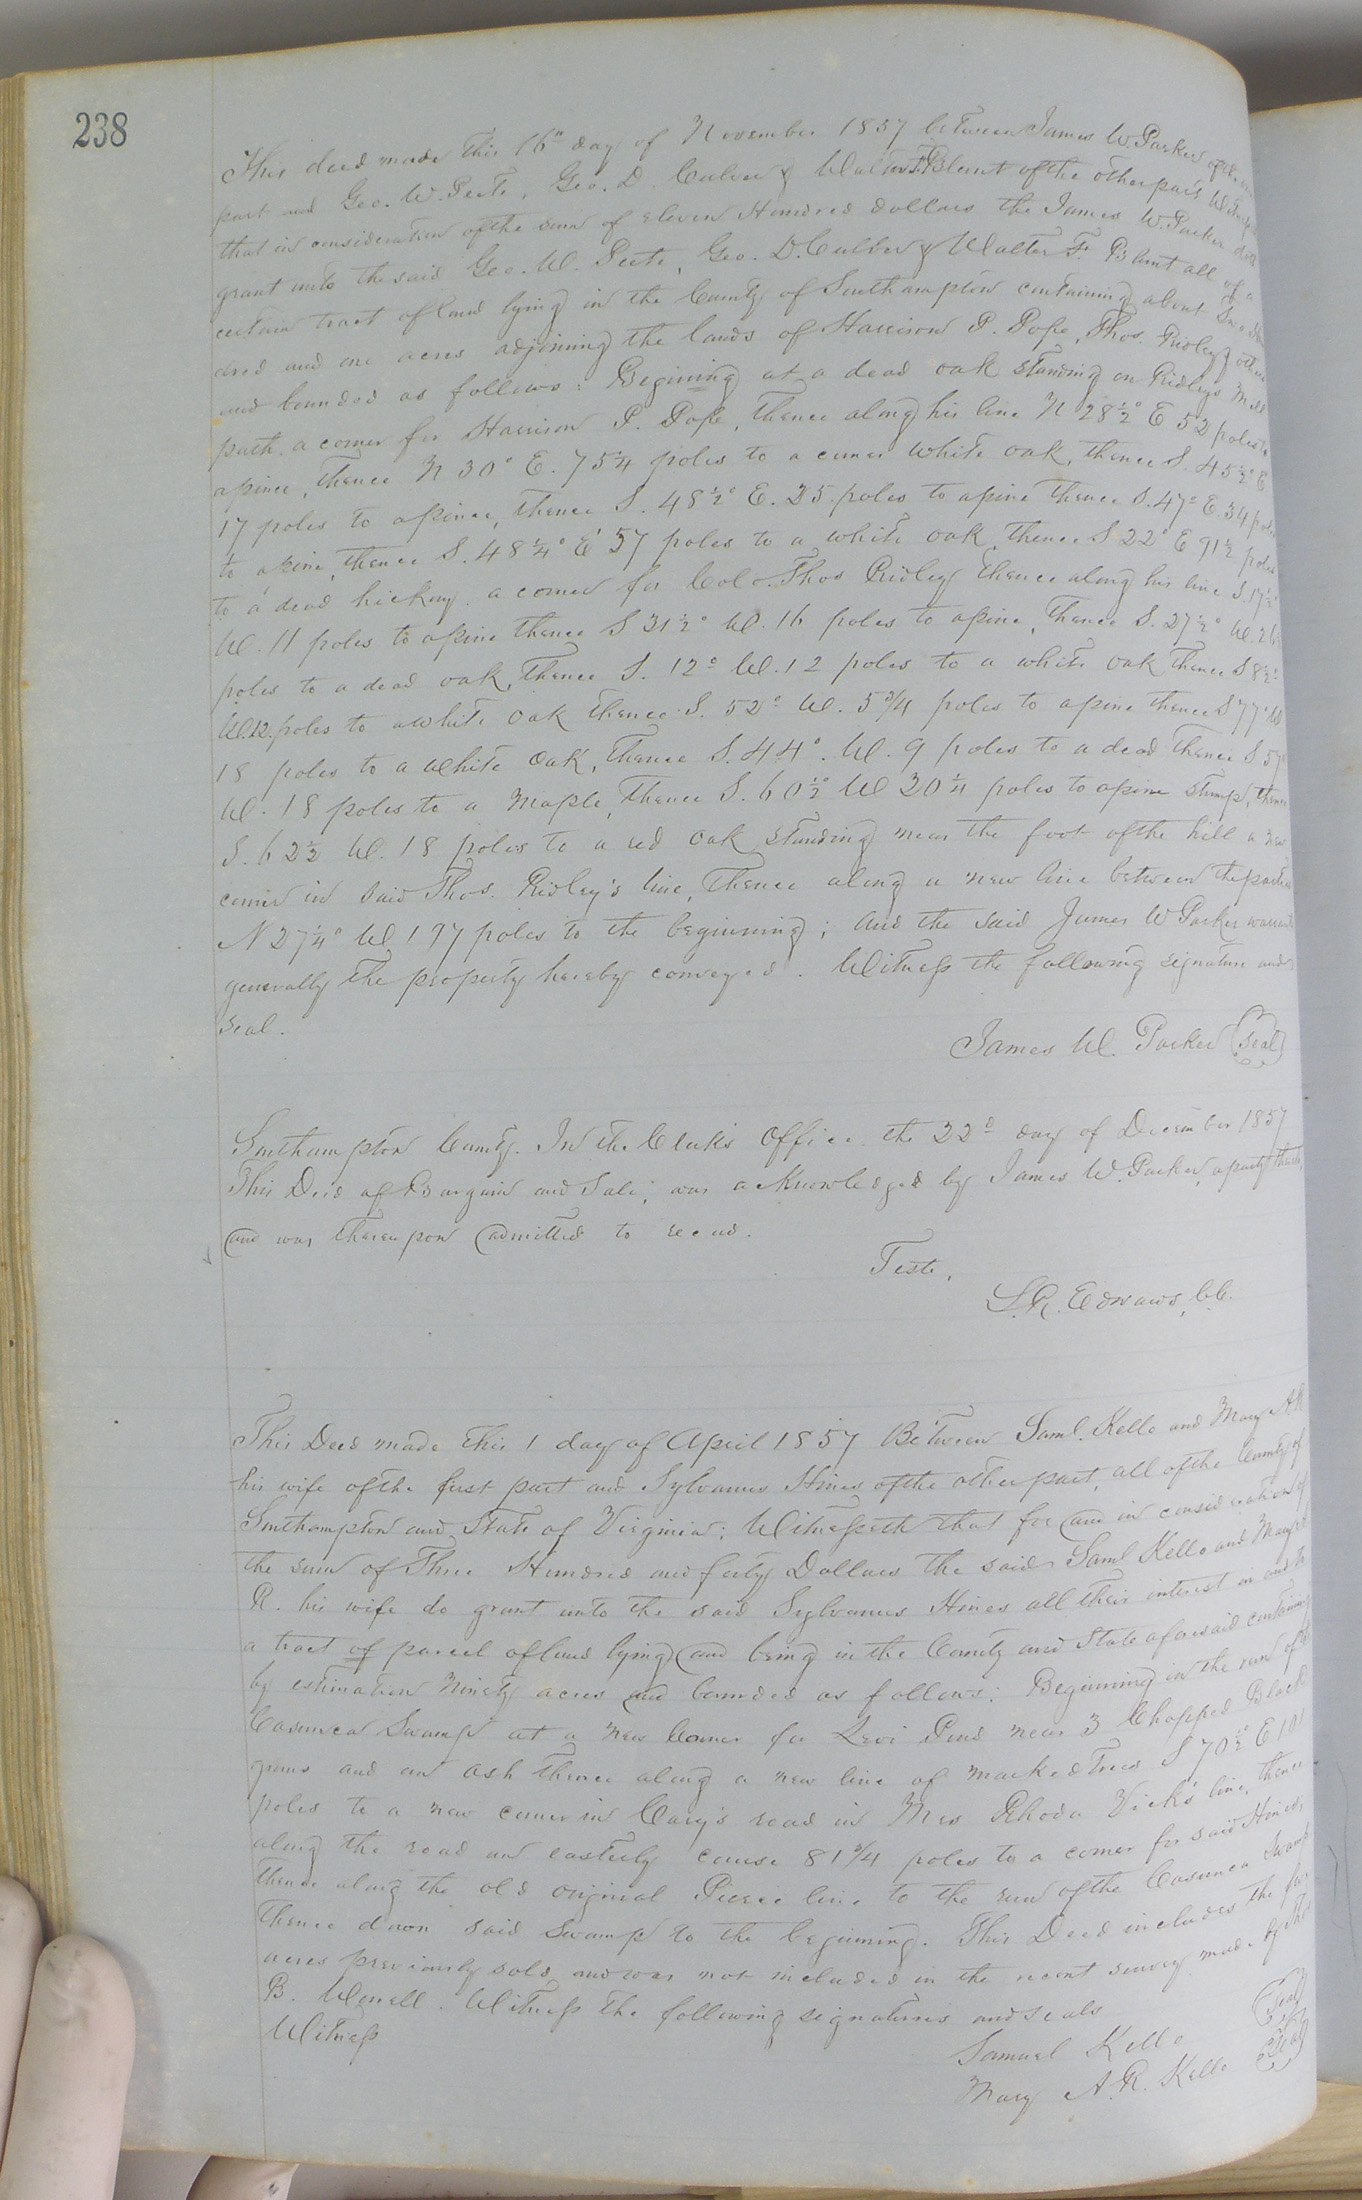 238
This deed made this 16th day of November 1857 between James W. Parker of the one
part and Geo. W. Peete, Geo. D. Culver & Walter F. Blunt of the other part Witnesseth
that in consideration of the sum of Eleven Hundred dollars the James W. Parker doth
grant unto the said Geo. W. Peete, Geo. D. Culver & Walter F. Blunt all of a
certain tract of land lying in the County of Southampton containing about
dred and one acres adjoining the lands of Harrison P. Pope, Thos. Ridley & others
and bounded as follows: Begining at a dead oak standing on Ridley's Mill
path, a corner for Harrison P. Pope, thence along his line N 28½° E 52 poles to
a pine, thence N 30° E. 75¼ poles to a corner white oak, thence S. 45½° E
17 poles to a pine, thence S. 48½° E. 25 poles to a pine thence S. 47° E. 34 poles
to a pine, thence S. 48¼° E 57 poles to a white oak, thence S 22° E 91½ poles
to a dead hickory, a corner for Colo. Thos Ridley thence along his line S. 17½°
W. 11 poles to a pine thence S 31½° W. 16 poles to a pine, thence S. 27½° W. 26
poles to a dead oak, thence S. 12° W. 12 poles to a white oak thence S 8½°
W. 12. poles to a white oak thence S. 52° W. 5¾ poles to a pine thence S 77° W
18 poles to a white oak, thence S. 44°. W. 9 poles to a dead thence S 57°
W. 18 poles to a maple, thence S. 60½° W 20¼ poles to a pine stump, thence
S. 62½ W. 18 poles to a red oak standing near the foot of the hill a new
corner in said Thos. Ridley's line, thence along a new line between the parties
N 27¼° W 197 poles to the beginning; and the said James W Parker warrants
generally the property hereby conveyed. Witness the following signature and
seal.
James W. Parker (seal)
Southampton County. In the Clerk's Office the 22d day of December 1857
This Deed of Bargain and Sale, was acknowledged by James W. Parker, a party thereto,
and was thereupon admitted to record.
Teste,
L. R. Edwards, C.C.
This Deed made this 1 day of April 1857 Between Saml. Kello and Mary A. R.
his wife of the first part and Sylvanus Hines of the other part, all of the County of
Southampton and State of Virginia; Witnesseth that for and in consideration of
the sum of Three Hundred and forty Dollars the said Saml Kello and Mary A
R. his wife do grant unto the said Sylvanus Hines all their interest in and to
a tract of parcel of land lying and being in the County and State aforesaid containing
by estimation Ninety acres and bounded as follows: Beginning in the run of the
Swamp at a new Corner for Levi Pond near 3 Chopped Black
gums and an ash thence along a new line of marked trees S 70½° E 101
poles to a new corner in Cary's road in Mrs Rhoda Vick's line, thence
along the road an easterly course 81¾ poles to a corner for said Hines,
thence along the old original Pierce line to the run of the Swamp
thence down said Swamp to the begining. This Deed includes the
acres previously sold and was not included in the recent survey made by Thos
B. Worrell. Witness the following signatures and seals
Witness
Samuel Kello (Seal)
Mary A. R. Kello (Seal)